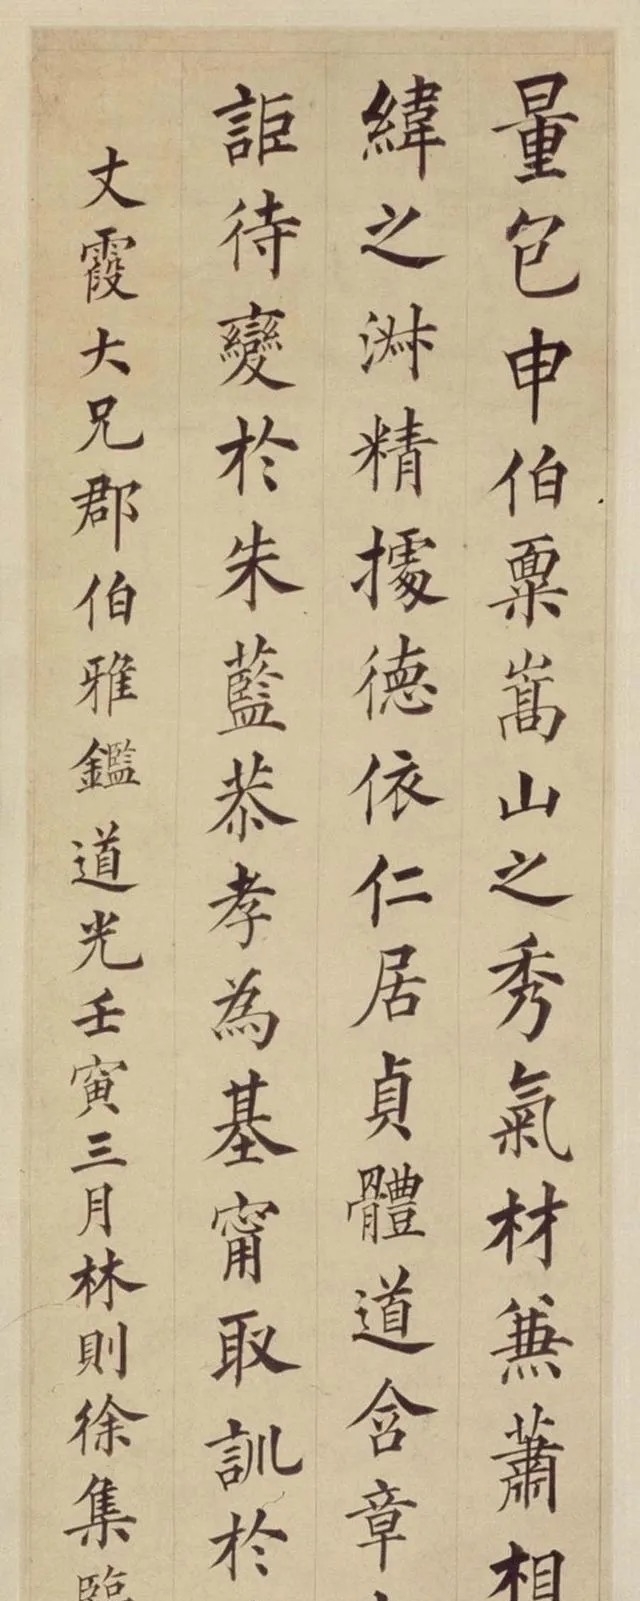 量包申伯禀嵩山之秀氣材蒹蕭相
緯之淋精據德依仁居貞體道含章
詎待變於朱藍恭孝為基甯取訓於
丈霞大兄郡伯雅鑑道光壬寅三月林則徐集臨